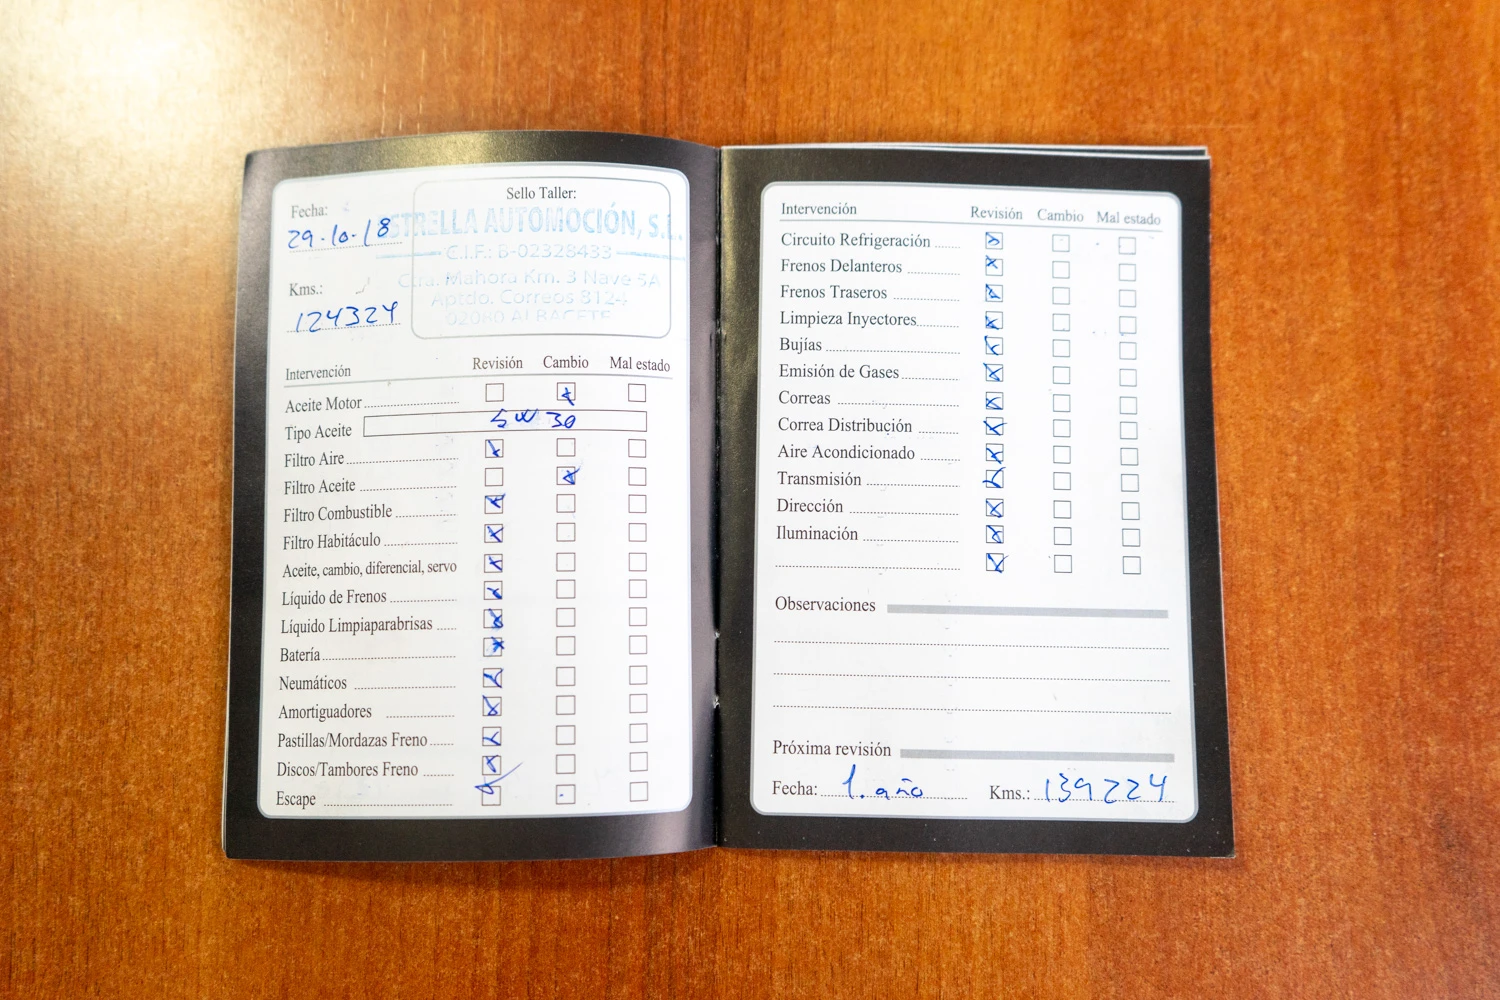 Fecha:
29-10-18
Kms.:
124324
Sello Taller:
ESTRELLA AUTOMOCIÓN, S.L.
C.I.F.: B-02328433
Ctra. Mahora Km. 3 Nave 5A
Aptdo. Correos 8124
02080 ALBACETE
Intervención Revisión Cambio Mal estado
Aceite Motor
Tipo Aceite 5W30
Filtro Aire
Filtro Aceite
Filtro Combustible
Filtro Habitáculo
Aceite, cambio, diferencial, servo
Líquido de Frenos
Líquido Limpiaparabrisas
Batería
Neumáticos
Amortiguadores
Pastillas/Mordazas Freno
Discos/Tambores Freno
Escape
Intervención Revisión Cambio Mal estado
Circuito Refrigeración
Frenos Delanteros
Frenos Traseros
Limpieza Inyectores
Bujías
Emisión de Gases
Correas
Correa Distribución
Aire Acondicionado
Transmisión
Dirección
Iluminación
Observaciones
Próxima revisión
Fecha: 1. año Kms.: 139224